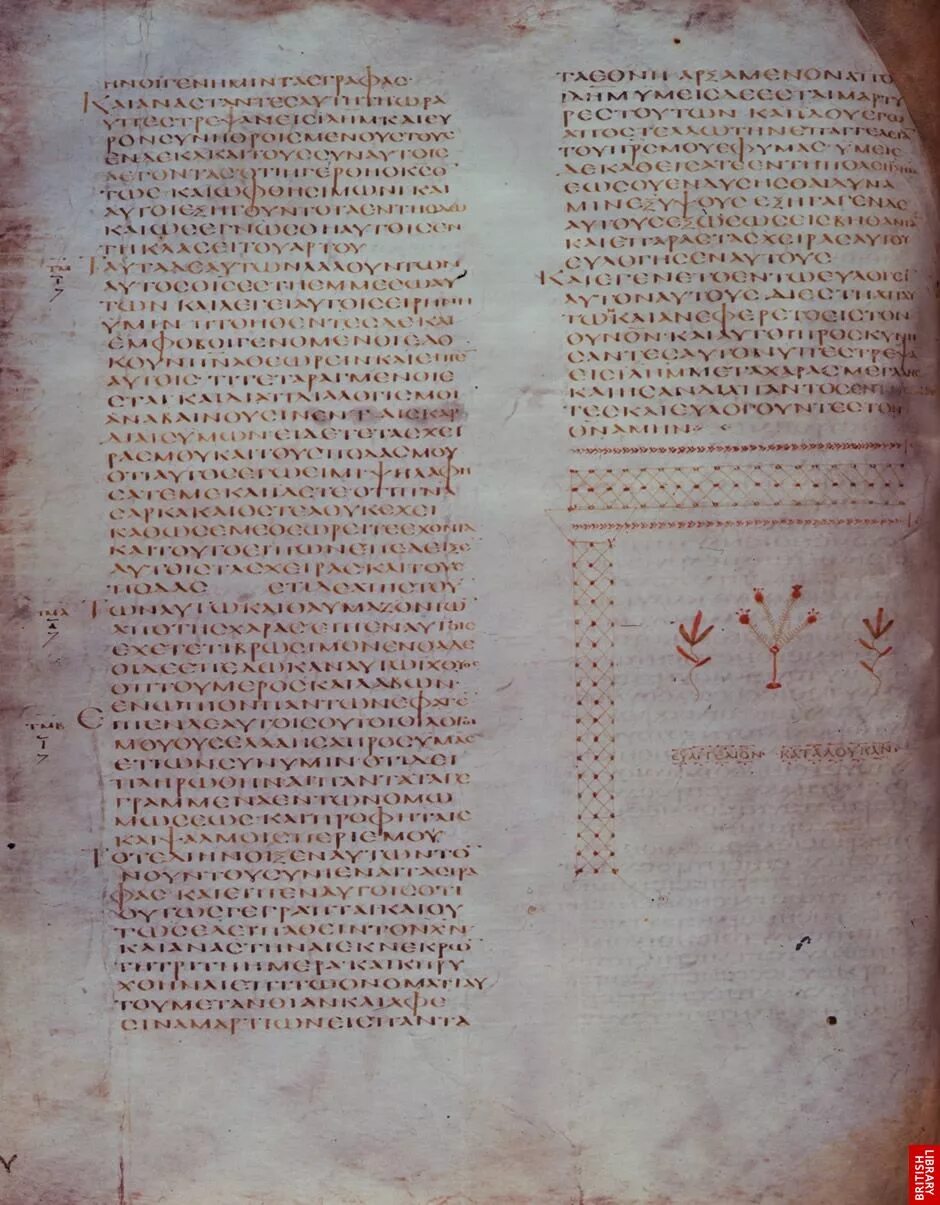 ΗΝΟΙΓΕΝΗΜΙΝΤΑϹΓΡΑΦΑϹ
ΚΑΙΑΝΑϹΤΑΝΤΕϹΑΥΤΗΤΗΩΡΑ
ΥΠΕϹΤΡΕΨΑΝΕΙϹΙΛΗΜΚΑΙΕΥ
ΡΟΝϹΥΝΗΘΡΟΙϹΜΕΝΟΥϹΤΟΥϹ
ΕΝΔΕΚΑΚΑΙΤΟΥϹϹΥΝΑΥΤΟΙϹ
ΛΕΓΟΝΤΑϹΟΤΙΗΓΕΡΘΗΟΚϹΟ
ΤΩϹ ΚΑΙΩΦΘΗϹΙΜΩΝΙΚΑΙ
ΑΥΤΟΙΕΞΗΓΟΥΝΤΟΤΑΕΝΤΗΟΔΩ
ΚΑΙΩϹΕΓΝΩϹΘΗΑΥΤΟΙϹΕΝ
ΤΗΚΛΑϹΕΙΤΟΥΑΡΤΟΥ
ΤΜ
ΤΑΥΤΑΔΕΑΥΤΩΝΛΑΛΟΥΝΤΩΝ
ΑΥΤΟϹΟΙϹΕϹΤΗΕΜΜΕϹΩΑΥ
ΤΩΝ ΚΑΙΛΕΓΕΙΑΥΤΟΙϹΕΙΡΗΝΗ
ΥΜΙΝ ΠΤΟΗΘΕΝΤΕϹΔΕΚΑΙ
ΕΜΦΟΒΟΙΓΕΝΟΜΕΝΟΙΕΔΟ
ΚΟΥΝΠΝΑΘΕΩΡΕΙΝΚΑΙΕΙΠΕ
ΑΥΤΟΙϹ ΤΙΤΕΤΑΡΑΓΜΕΝΟΙΕ
ϹΤΑΙ ΚΑΙΔΙΑΤΙΔΙΑΛΟΓΙϹΜΟΙ
ΑΝΑΒΑΙΝΟΥϹΙΝΕΝΤΑΙϹΚΑΡ
ΔΙΑΙϹΥΜΩΝ ΕΙΔΕΤΕΤΑϹΧΕΙ
ΡΑϹΜΟΥΚΑΙΤΟΥϹΠΟΔΑϹΜΟΥ
ΟΤΙΑΥΤΟϹΕΓΩΕΙΜΙ ΨΗΛΑΦΗ
ϹΑΤΕΜΕΚΑΙΙΔΕΤΕΟΤΙΠΝΑ
ϹΑΡΚΑΚΑΙΟϹΤΕΑΟΥΚΕΧΕΙ
ΚΑΘΩϹΕΜΕΘΕΩΡΕΙΤΕΕΧΟΝΤΑ
ΚΑΙΤΟΥΤΟΕΙΠΩΝΕΠΕΔΕΙΞΕ
ΑΥΤΟΙϹΤΑϹΧΕΙΡΑϹΚΑΙΤΟΥϹ
ΠΟΔΑϹ ΕΤΙΔΕΑΠΙϹΤΟΥ
ΤΜΑ
ΤΩΝΑΥΤΩΚΑΙΘΑΥΜΑΖΟΝΤΩ
ΑΠΟΤΗϹΧΑΡΑϹ ΕΙΠΕΝΑΥΤΟΙϹ
ΕΧΕΤΕΤΙΒΡΩϹΙΜΟΝΕΝΘΑΔΕ
ΟΙΔΕΕΠΕΔΩΚΑΝΑΥΤΩΙΧΘΥΟϹ
ΟΠΤΟΥΜΕΡΟϹΚΑΙΛΑΒΩΝ
ΕΝΩΠΙΟΝΠΑΝΤΩΝΕΦΑΓΕ
ΤΜΒ
ΕΙΠΕΝΔΕΑΥΤΟΙϹΟΥΤΟΙΟΙΛΟΓΟΙ
ΜΟΥΟΥϹΕΛΑΛΗϹΑΠΡΟϹΥΜΑϹ
ΕΤΙΩΝϹΥΝΥΜΙΝΟΤΙΔΕΙ
ΠΛΗΡΩΘΗΝΑΙΠΑΝΤΑΤΑΓΕ
ΓΡΑΜΜΕΝΑΕΝΤΩΝΟΜΩ
ΜΩϹΕΩϹ ΚΑΙΠΡΟΦΗΤΑΙϹ
ΚΑΙΨΑΛΜΟΙϹΠΕΡΙΕΜΟΥ
ΤΟΤΕΔΙΗΝΟΙΞΕΝΑΥΤΩΝΤΟ
ΝΟΥΝΤΟΥϹΥΝΙΕΝΑΙΤΑϹΓΡΑ
ΦΑϹ ΚΑΙΕΙΠΕΝΑΥΤΟΙϹΟΤΙ
ΟΥΤΩϹΓΕΓΡΑΠΤΑΙΚΑΙΟΥ
ΤΩϹΕΔΕΙΠΑΘΕΙΝΤΟΝΧΝ
ΚΑΙΑΝΑϹΤΗΝΑΙΕΚΝΕΚΡΩ
ΤΗΤΡΙΤΗΗΜΕΡΑ ΚΑΙΚΗΡΥ
ΧΘΗΝΑΙΕΠΙΤΩΟΝΟΜΑΤΙΑΥ
ΤΟΥΜΕΤΑΝΟΙΑΝΚΑΙΑΦΕ
ϹΙΝΑΜΑΡΤΙΩΝΕΙϹΠΑΝΤΑ
ΤΑΕΘΝΗ ΑΡΞΑΜΕΝΟΝΑΠΟ
ΙΛΗΜ ΥΜΕΙϹΔΕΕϹΤΑΙΜΑΡΤΥ
ΡΕϹΤΟΥΤΩΝ ΚΑΙΙΔΟΥΕΓΩ
ΑΠΟϹΤΕΛΛΩΤΗΝΕΠΑΓΓΕΛΕΙΑ
ΤΟΥΠΡϹΜΟΥΕΦΥΜΑϹ ΥΜΕΙϹ
ΔΕΚΑΘΕΙϹΑΤΕΕΝΤΗΠΟΛΕΙ
ΕΩϹΟΥΕΝΔΥϹΗϹΘΑΙΔΥΝΑ
ΜΙΝΕΞΥΨΟΥϹ ΕΞΗΓΑΓΕΝΔΕ
ΑΥΤΟΥϹΕΞΩΕΩϹΕΙϹΒΗΘΑΝΙΑ
ΚΑΙΕΠΑΡΑϹΤΑϹΧΕΙΡΑϹΑΥΤΟΥ
ΕΥΛΟΓΗϹΕΝΑΥΤΟΥϹ
ΚΑΙΕΓΕΝΕΤΟΕΝΤΩΕΥΛΟΓΕΙ
ΑΥΤΟΝΑΥΤΟΥϹ ΔΙΕϹΤΗΑΠΑΥ
ΤΩΚΑΙΑΝΕΦΕΡΕΤΟΕΙϹΤΟΝ
ΟΥΝΟΝ ΚΑΙΑΥΤΟΙΠΡΟϹΚΥΝΗ
ϹΑΝΤΕϹΑΥΤΟΝΥΠΕϹΤΡΕΨΑ
ΕΙϹΙΛΗΜΜΕΤΑΧΑΡΑϹΜΕΓΑΛΗϹ
ΚΑΙΗϹΑΝΔΙΑΠΑΝΤΟϹΕΝΤΩ
ΤΕϹΚΑΙΕΥΛΟΓΟΥΝΤΕϹΤΟ
ΘΝΑΜΗΝ
ΕΥΑΓΓΕΛΙΟΝ ΚΑΤΑΛΟΥΚΑΝ
BRITISH
LIBRARY